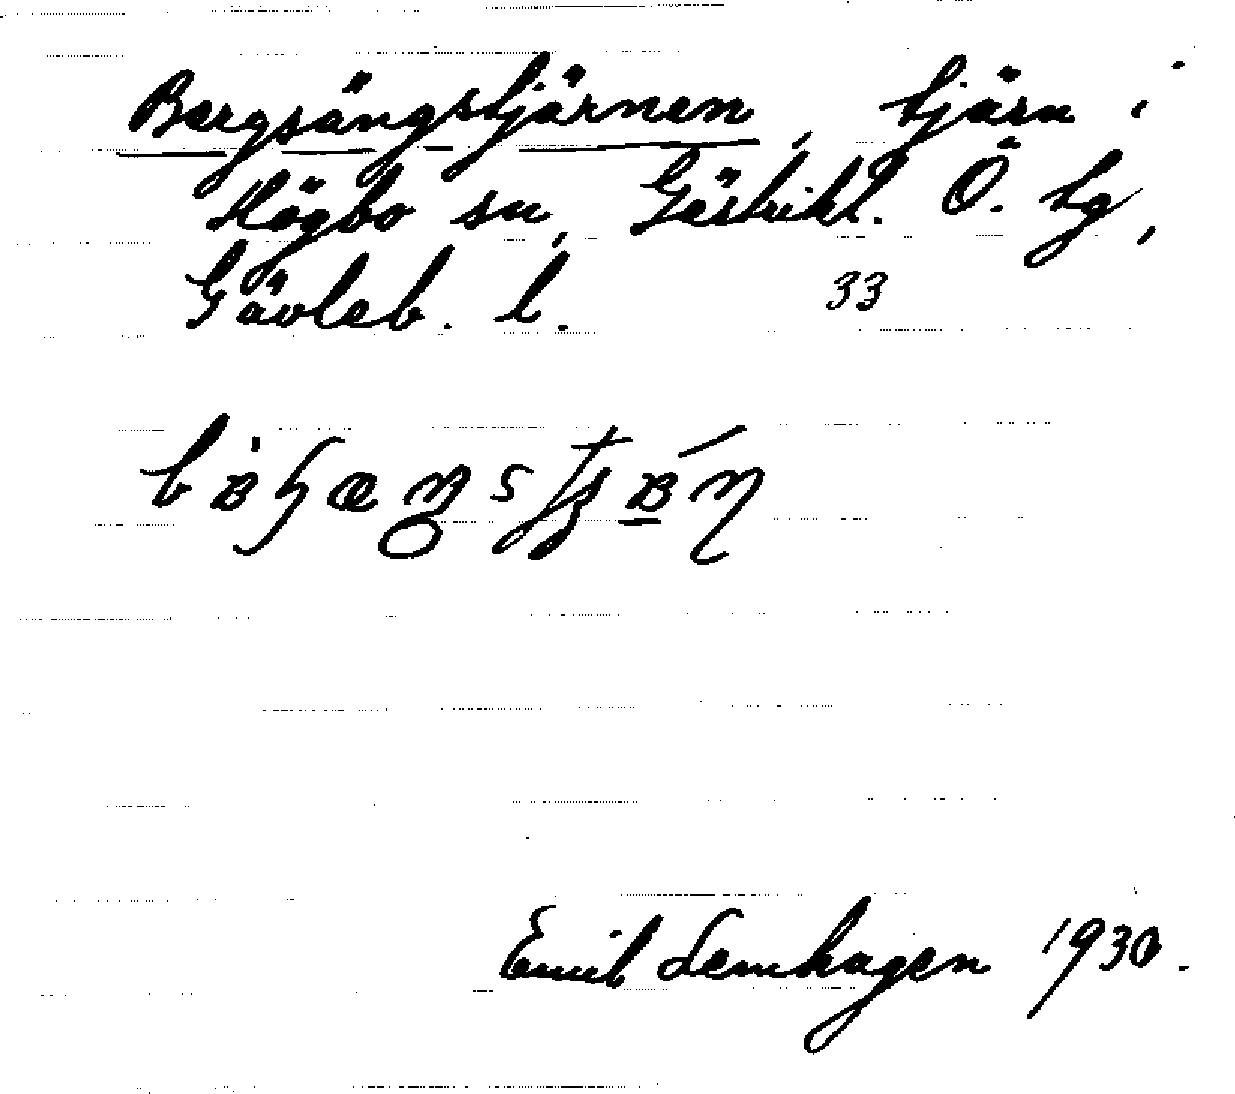 Bergsängstjärnen, tjärn i
Högbo sn, Gästrikl. Ö. tg,
Gävleb. l. 33
Emil Lemhagen 1930.